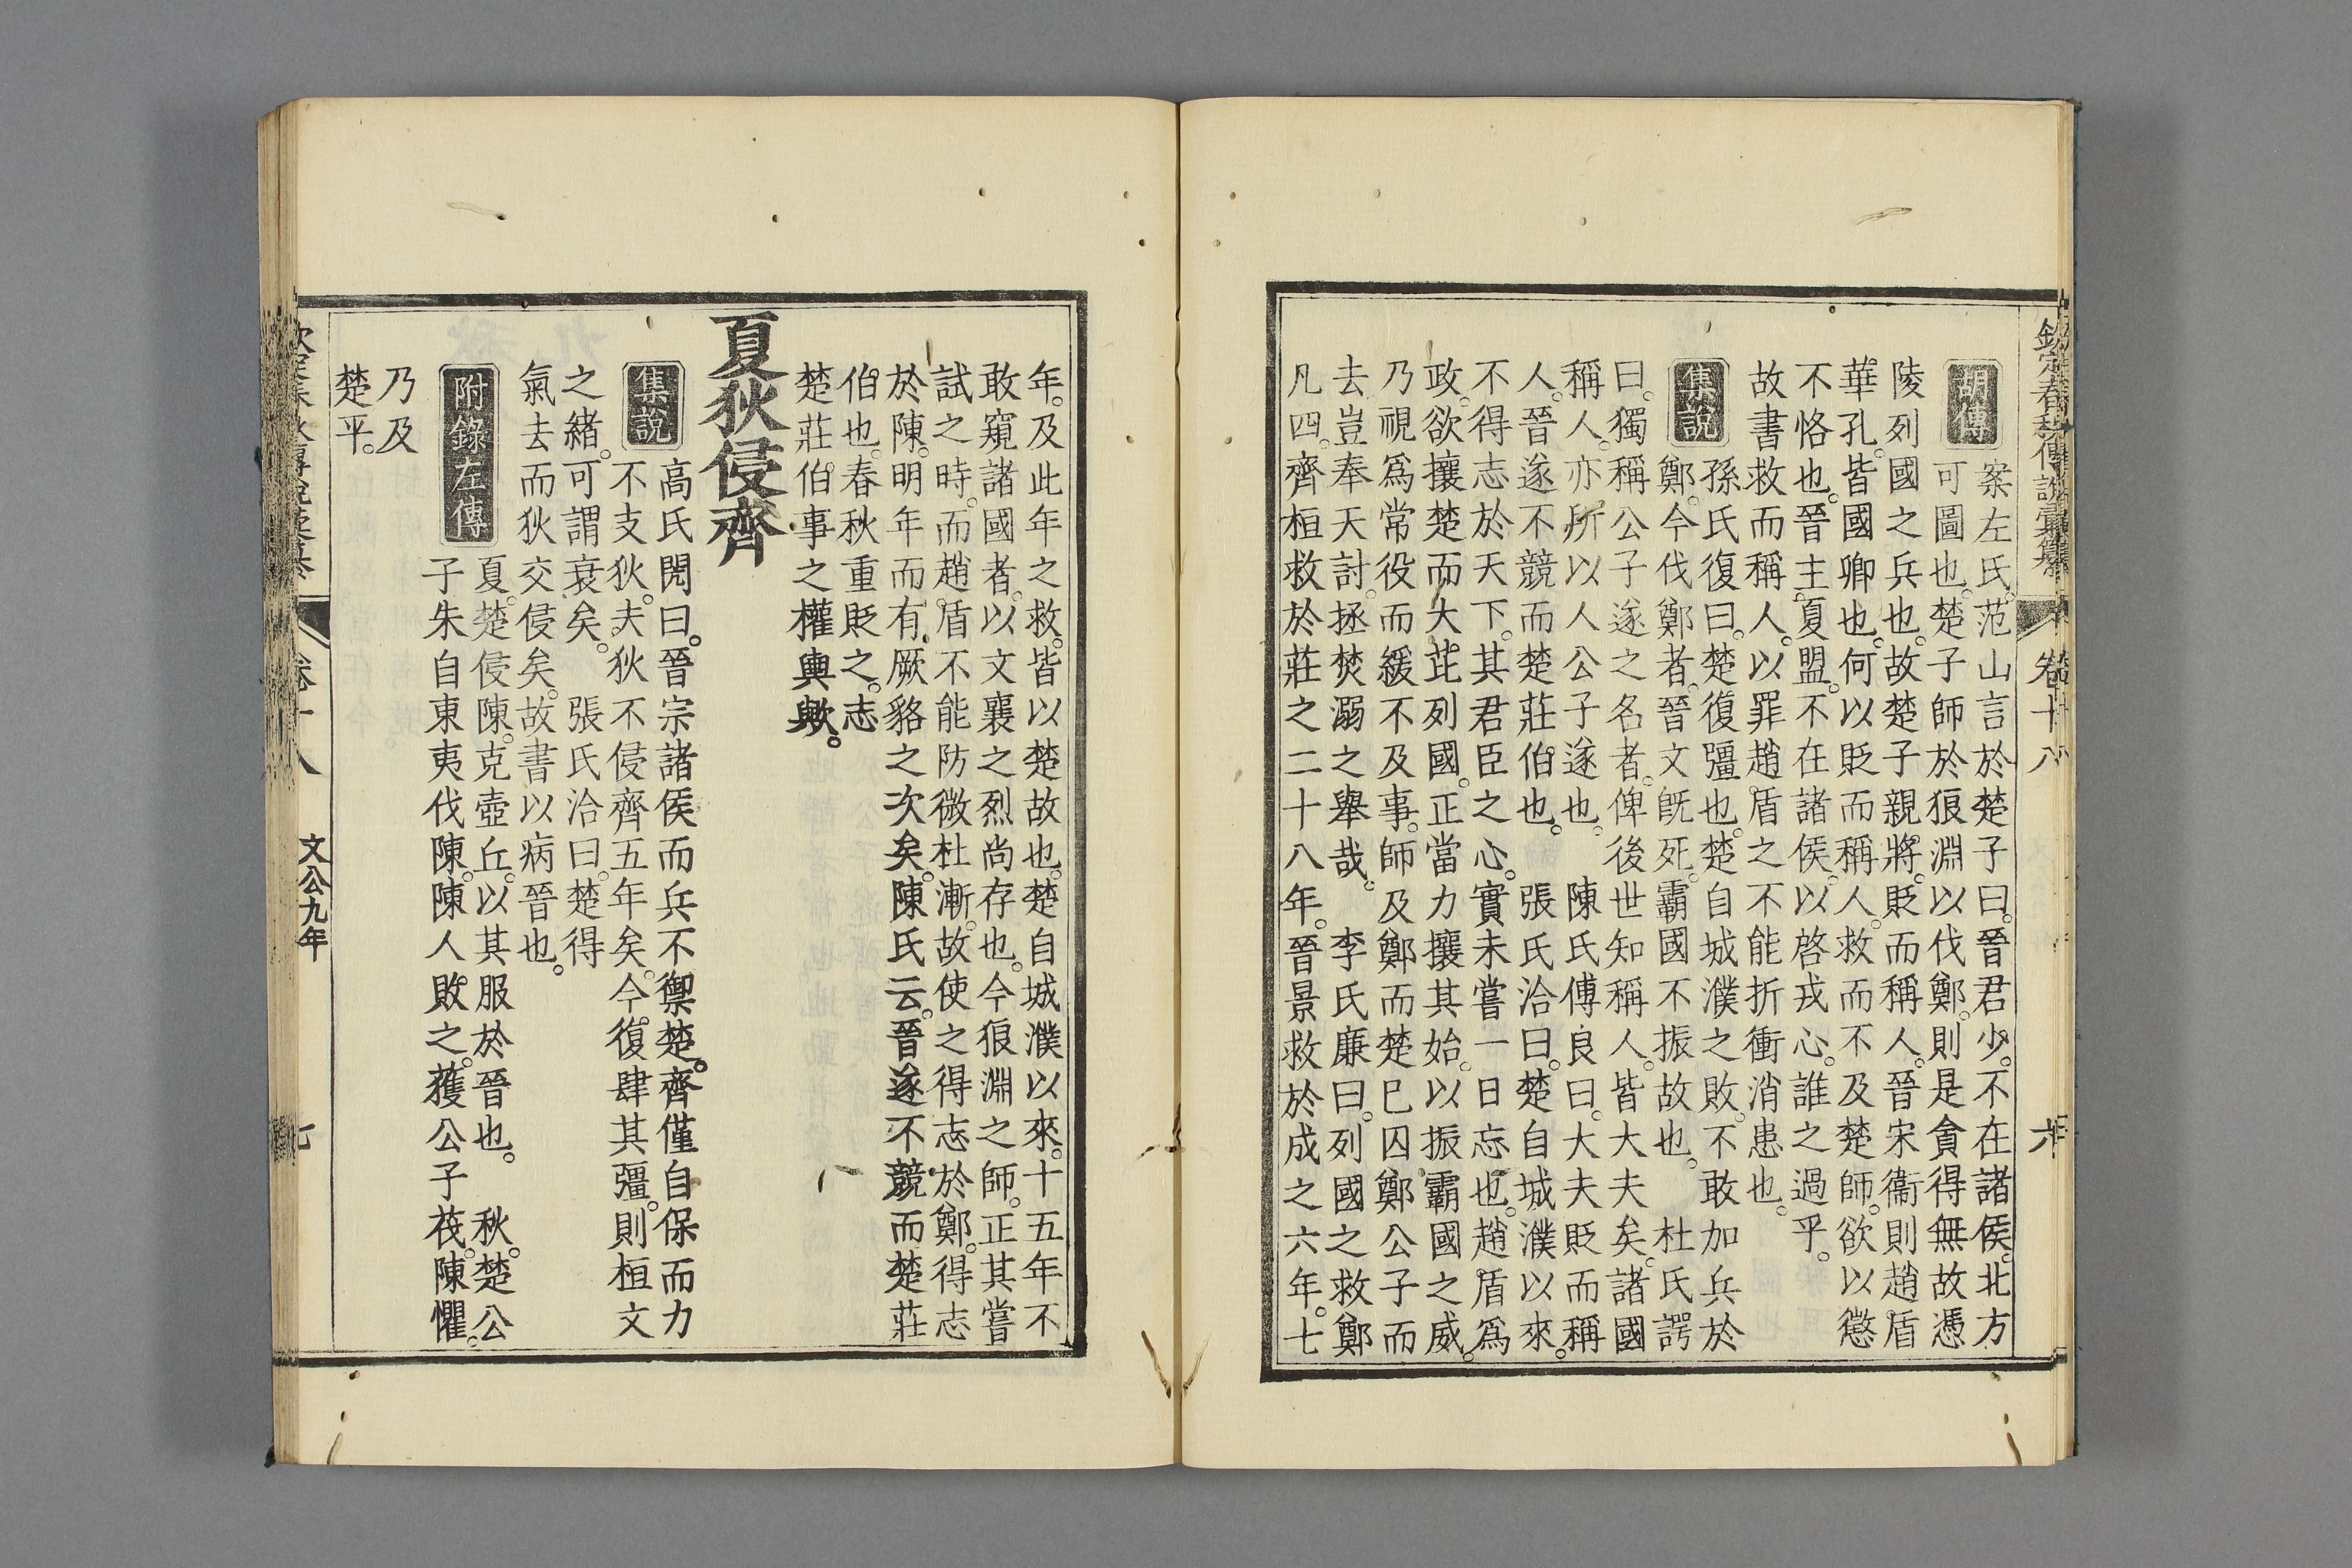 欽定春秋傳說彙纂 卷十八 六
胡傳
案左氏范山言於楚子曰。晉君少。不在諸侯。北方
可圖也。楚子師於狼淵以伐鄭。則是貪得無故憑
陵列國之兵也。故楚子親將。貶而稱人。晉宋衞則趙盾
華孔。皆國卿也。何以貶而稱人。救而不及楚師。欲以懲
不恪也。晉主夏盟。不在諸侯。以啓戎心。誰之過乎。
故書救而稱人。以罪趙盾之不能折衝消患也。
集說
孫氏復曰。楚復彊也。楚自城濮之敗。不敢加兵於
鄭。今伐鄭者。晉文旣死。霸國不振故也。 杜氏諤
曰。獨稱公子遂之名者。俾後世知稱人。皆大夫矣。諸國
稱人。亦所以人公子遂也。 陳氏傅良曰。大夫貶而稱
人。晉遂不競而楚莊伯也。 張氏洽曰。楚自城濮以來。
不得志於天下。其君臣之心。實未嘗一日忘也。趙盾爲
政。欲攘楚而大芘列國。正當力攘其始。以振霸國之威。
乃視爲常役而緩不及事。師及鄭而楚已囚鄭公子而
去。豈奉天討。拯焚溺之舉哉。 李氏廉曰。列國之救鄭
凡四。齊桓救於莊之二十八年。晉景救於成之六年。七
年。及此年之救。皆以楚故也。楚自城濮以來。十五年不
敢窺諸國者。以文襄之烈尚存也。今狼淵之師。正其嘗
試之時。而趙盾不能防微杜漸。故使之得志於鄭。得志
於陳。明年而有厥貉之次矣。陳氏云。晉遂不競而楚莊
伯也。春秋重貶之。志
楚莊伯事之權輿歟。
夏狄侵齊
集說
高氏閌曰。晉宗諸侯而兵不禦楚。齊僅自保而力
不支狄。夫狄不侵齊五年矣。今復肆其彊。則桓文
之緒。可謂衰矣。 張氏洽曰。楚得
氣去而狄交侵矣。故書以病晉也。
附錄左傳
夏。楚侵陳。克壺丘。以其服於晉也。 秋。楚公
子朱自東夷伐陳。陳人敗之。獲公子茷。陳懼。
乃及
楚平。
欽定春秋傳說彙纂 卷十八 文公九年 七